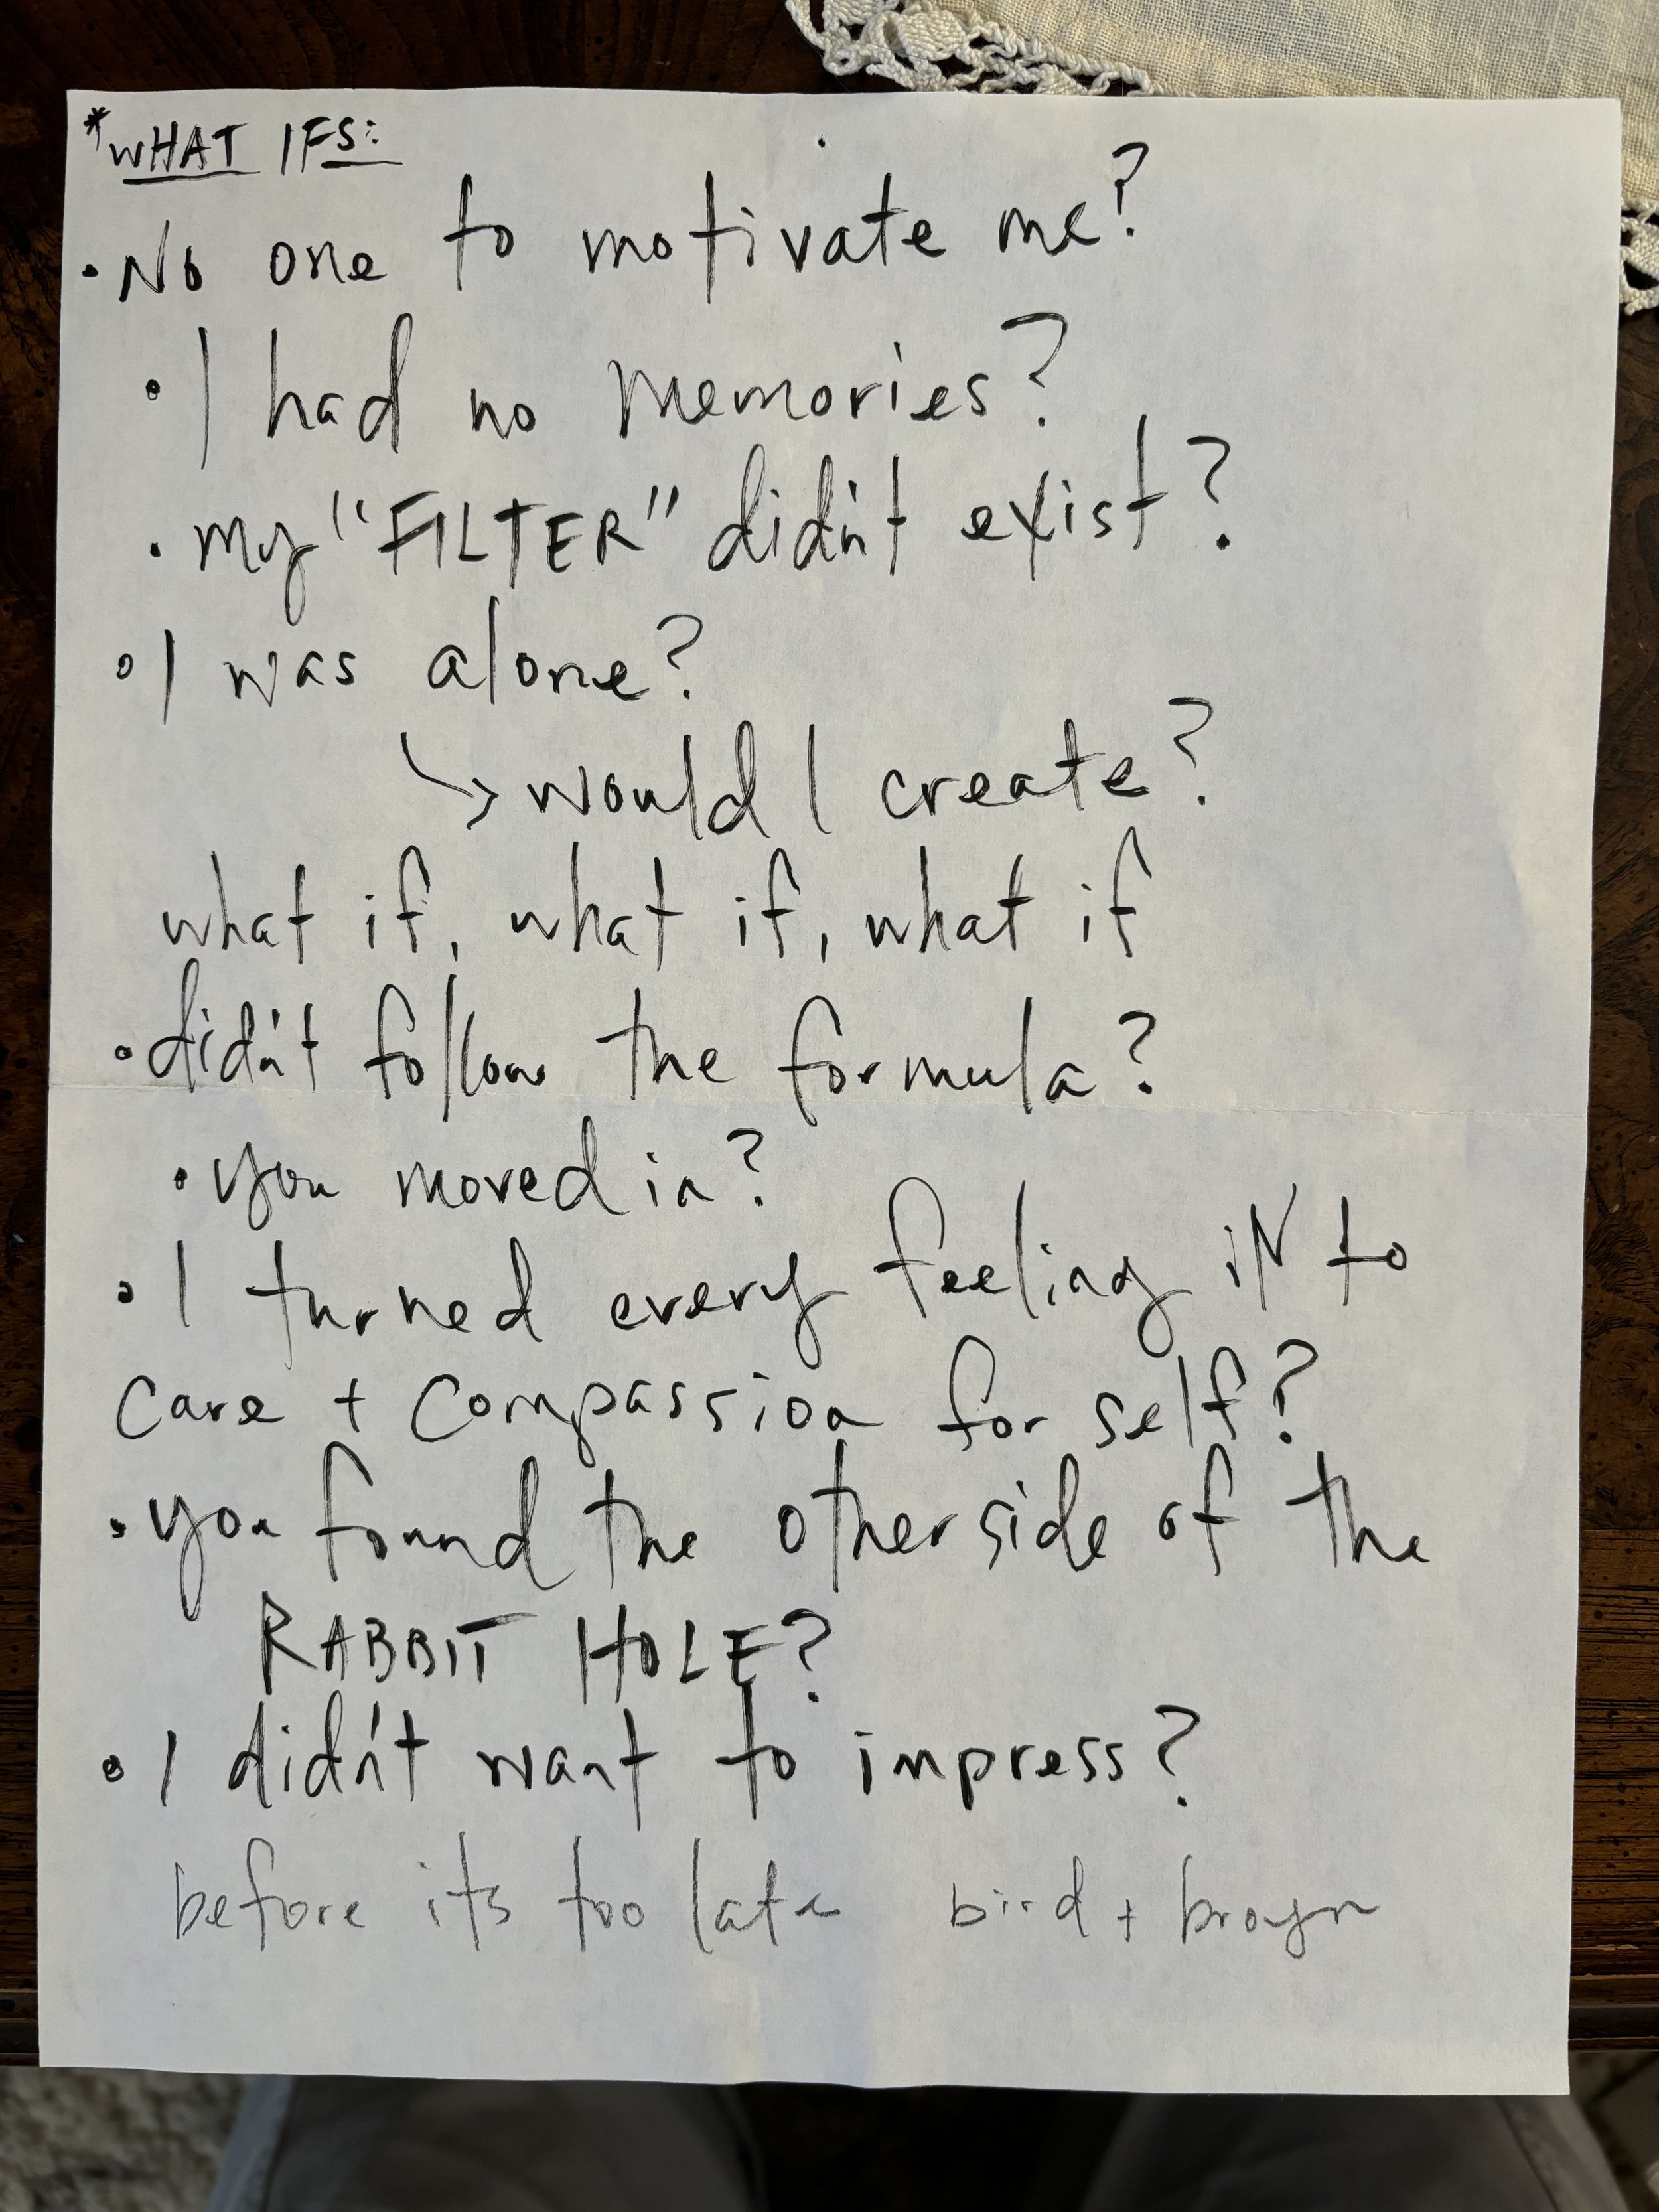 *WHAT IFS:
• No one to motivate me?
• I had no memories?
• my "FILTER" didn't exist?
• I was alone?
↳ would I create?
what if, what if, what if
• didn't follow the formula?
• you moved in?
• I turned every feeling iN to
care + compassion for self?
• you found the otherside of the
RABBIT HOLE?
• I didn't want to impress?
before its too late bird +